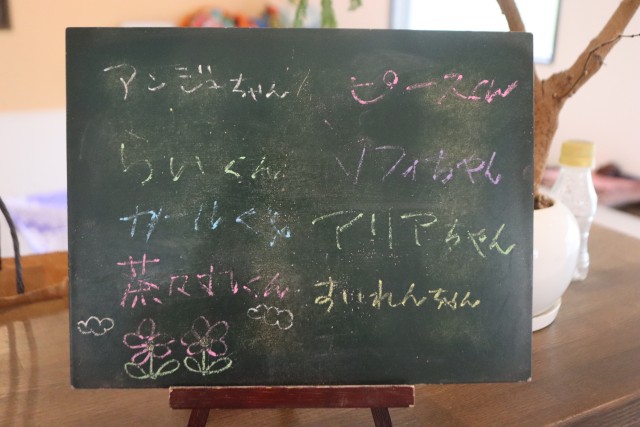 アンジュちゃん ピースくん
らいくん ソフィちゃん
カールくん アリアちゃん
茶々すけくん すいれんちゃん